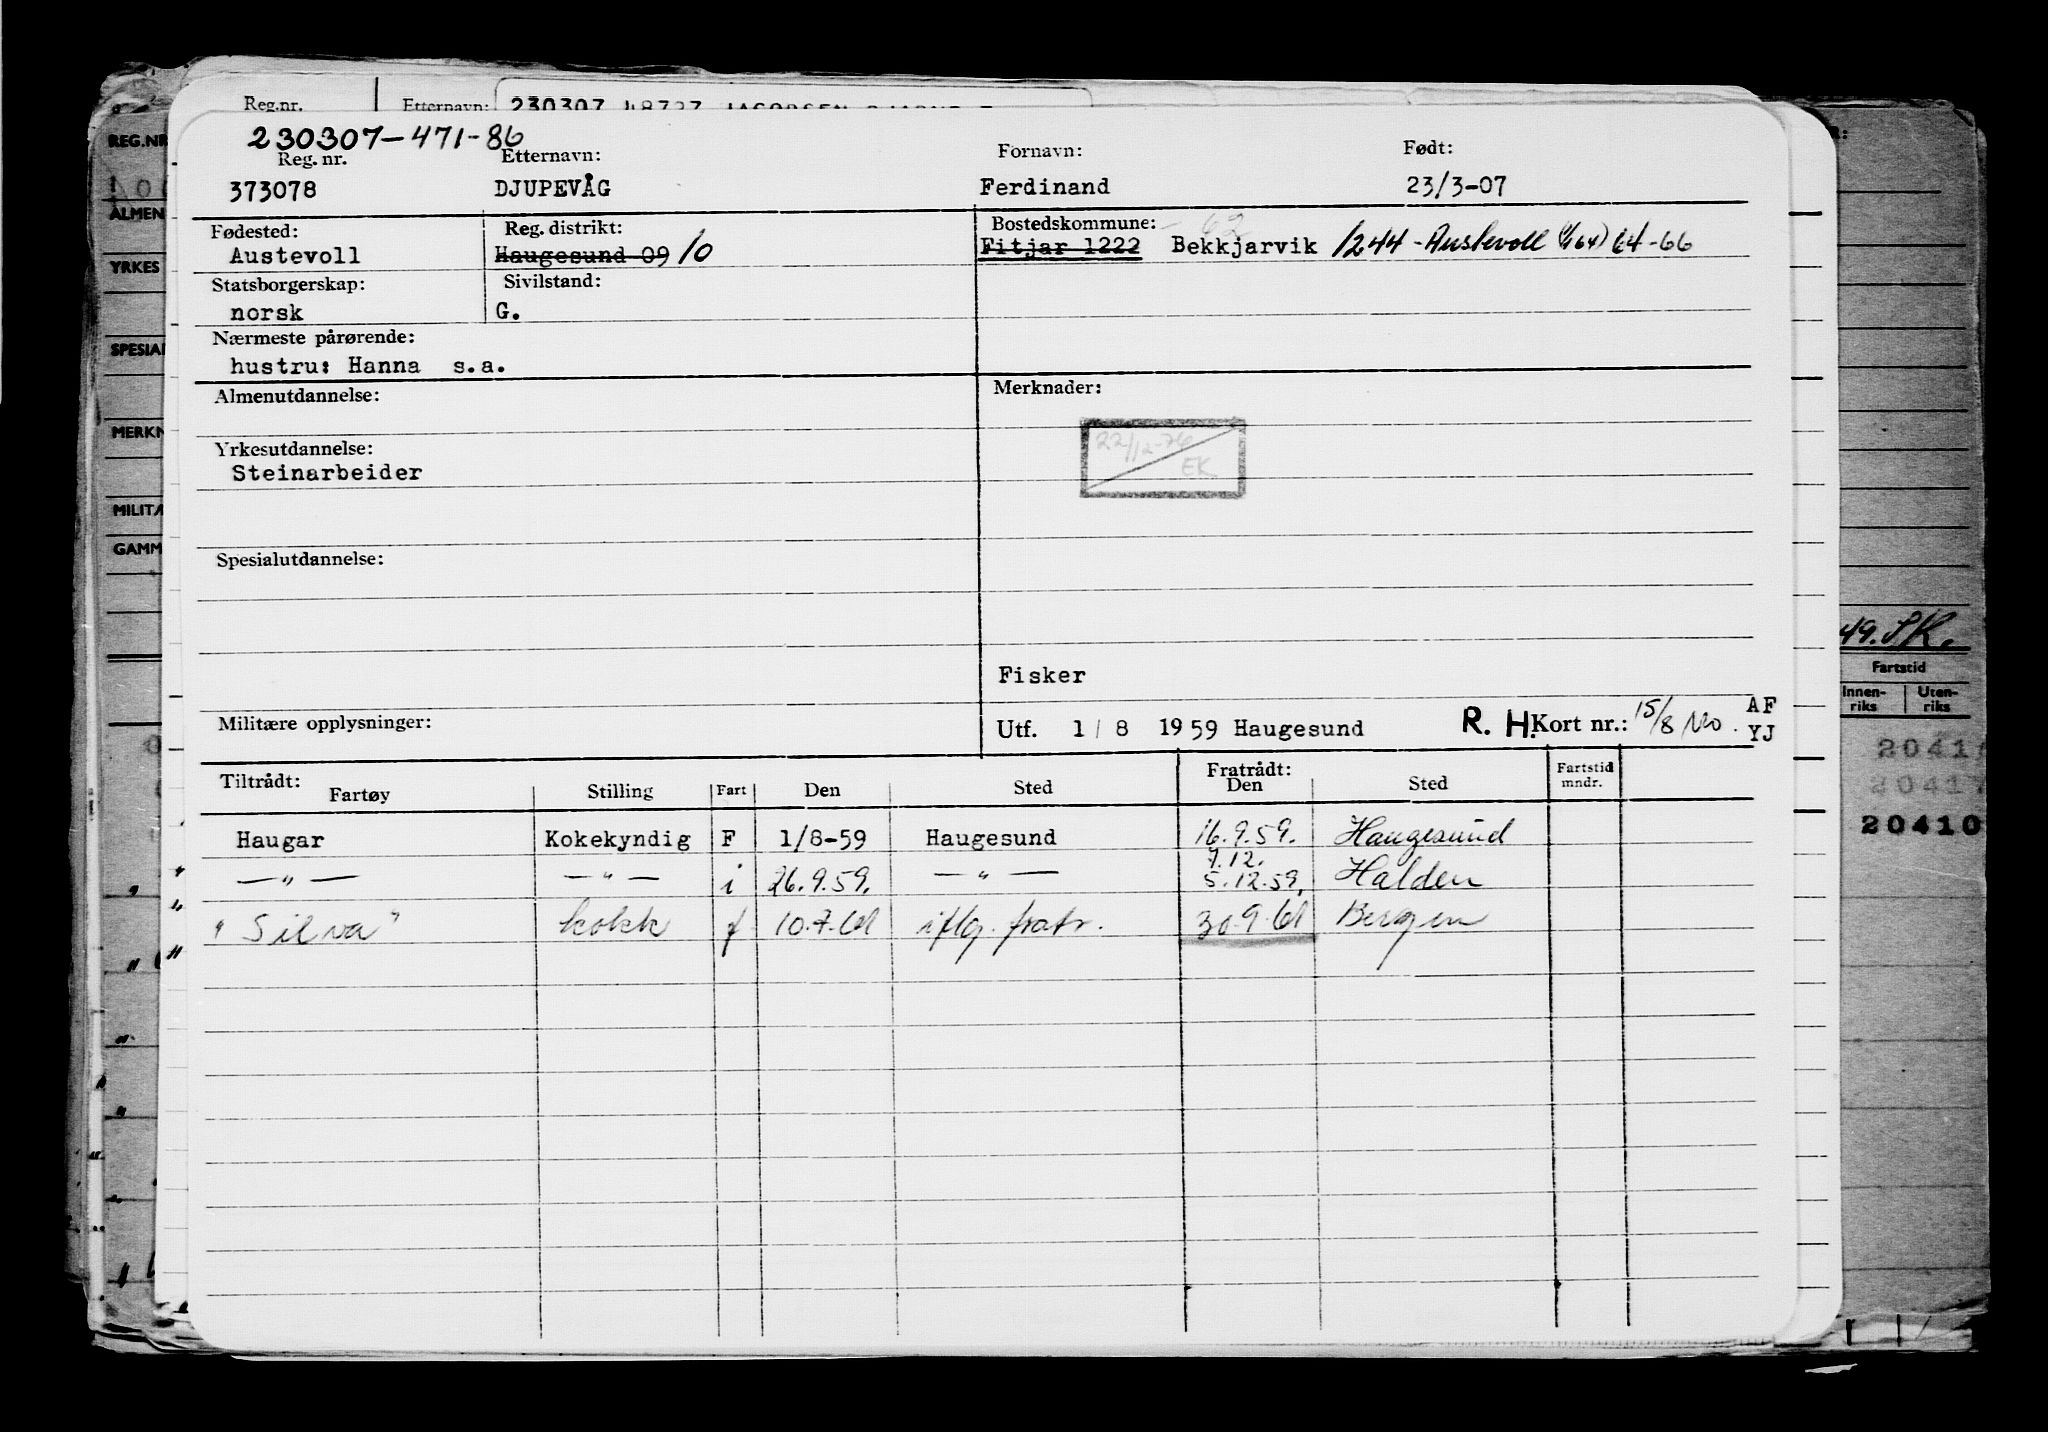 Reg.nr. Etternavn: 230307 48727 JACOBSEN
230307-471-86
Reg. nr. Etternavn: Fornavn: Født:
373078 DJUPEVÅG Ferdinand 23/3-07
Fødested: Reg. distrikt: Bostedskommune: 62
Austevoll Haugesund 09 10 Fitjar 1222 Bekkjarvik 1244 - Austevoll 64-66
Statsborgerskap: Sivilstand:
norsk G.
Nærmeste pårørende:
hustru: Hanna s.a.
Almenutdannelse: Merknader:
22/12-76
EK
Yrkesutdannelse:
Steinarbeider
Spesialutdannelse:
Fisker
Militære opplysninger: Utf. 1/8 1959 Haugesund R. H. Kort nr.: 15/8 AF
YJ
Tiltrådt: Fratrådt: Fartstid
Fartøy Stilling Fart Den Sted Den Sted mndr.
Haugar Kokekyndig F 1/8-59 Haugesund 16.9.59. Haugesund
7.12.
—"— —"— i 26.9.59. —"— 5.12.59. Halden
"Silva" kokk f 10.7.61 iflg. fratr. 30.9.61 Bergen
REG.NR
YRKES
SPESIAL
MERKN
MILITÆ
GAMM
49. SK.
Fartstid
Innen-
riks Uten-
riks
20417
20410